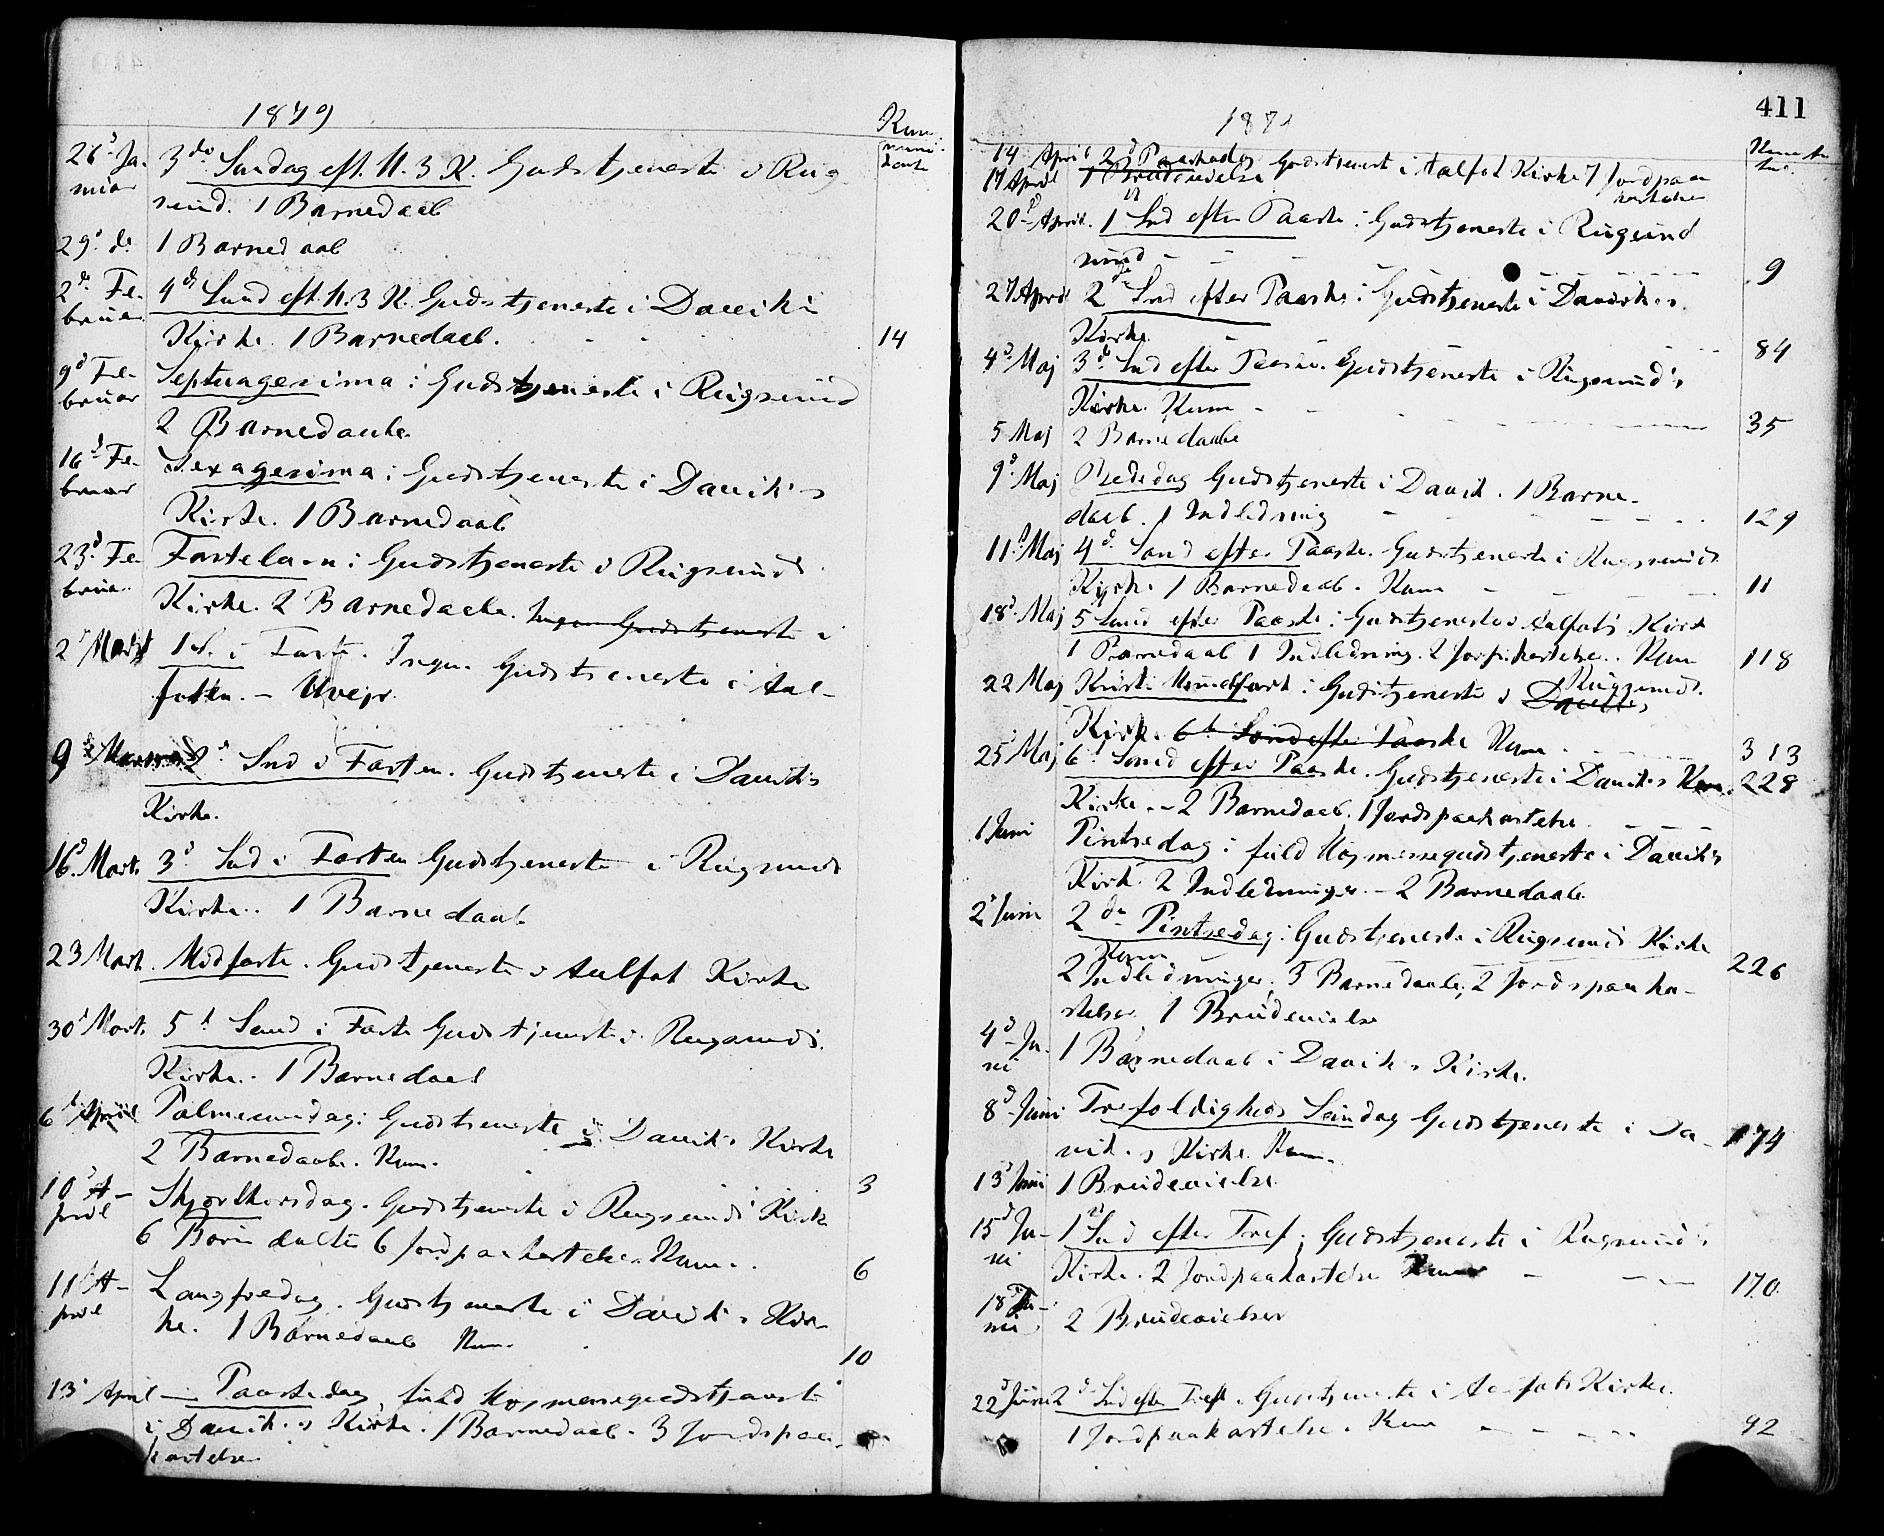 1879
Kom-
muni-
kante
26d Ja-
nuar
3die Søndag eft. H. 3 K. Gudstjeneste i Rug-
sund. 1 Barnedaab
29d do
1 Barnedaab
2d Fe-
bruar
4d Sund eft. H. 3 K. Gudstjeneste i Daviks
Kirke. 1 Barnedaab.
14
9d Fe-
bruar
Septuagesima: Gudstjeneste i Rugsund
2 Barnedaabe.
16d Fe-
bruar
Sexagesima: Gudstjeneste i Daviks
Kirke. 1 Barnedaab
23d Fe-
bruar
Fastelavn: Gudstjeneste i Rugsunds
Kirke. 2 Barnedaabe. Ingen Gudstjeneste i
2d Marts
1 S. i Faste. Ingen Gudstjeneste i Aal-
foten. - Uvejr.
9d
2d Snd i Fasten. Gudstjeneste i Daviks
Kirke.
16d Marts
3d Snd i Fasten Gudstjeneste i Rugsunds
Kirke. 1 Barnedaab
23 Marts
Midfaste. Gudstjeneste i Aalfot Kirke
30d Marts
5d Sund i Faste Gudstjeneste i Rugsunds
Kirke. 1 Barnedaab
6d April
Palmesundag: Gudstjeneste i Daviks Kirke
2 Barnedaabe. Kom.
3
10d A-
pril
Skjærthorsdag. Gudstjeneste i Rugsunds Kirke
6 Børn døbte 6 Jordpaakastelser Kom.
6
11d A-
pril
Langfredag. Gudstjeneste i Daviks Kir-
ke. 1 Barnedaab Kom.
10
13d April
Paaskedag, fuld Højmessegudstjeneste
i Daviks Kirke. 1 Barnedaab. 3 Jordspaa-
kastelse
411
187
14 April
2d Paaskedag Gudstjenest i Aalfot Kirke 7 Jordpaa
kastelse
17 April
1 Brudevielse
20d April.
1st Snd efter Paaske: Gudstjeneste i Rugsund
sund
9
27 April
2d Snd efter Paaske: Gudstjeneste i Daviks
Kirke.
84
4d Maj
3d Snd efter Paaske. Gudstjeneste i Rugsund's
Kirke. Kom
35
5 Maj
2 Barnedaabe
9d Maj
Bededag Gudstjeneste i Davik. 1 Barne-
daab. 1 Indledning
129
11d Maj
4d Sønd efter Paaske. Gudstjeneste i Rugsunds
Kirke 1 Barnedaab. Kom
11
18d Maj
5 Sund efter Paaske: Gudstjeneste i Aalfots Kirke
1 Barnedaab 1 Indledning. 2 Jorp.kastelse. Kom
118
22 Maj
Kristi Himmelfart: Gudstjeneste i Daviks Rugsunds.
Kirke. 6te Sønd efter Paaske Kom
313
25d Maj
6d Sønd efter Paaske. Gudstjeneste i Daviks Kom.
228
Kirke. - 2 Barnedaab. 1 Jordspaakastelse
1 Juni
Pintsedag: fuld Højmessegudstjeneste i Daviks
Kirke. 2 Indledninger. - 2 Barnedaab.
2d Juni
2de Pintsedag: Gudstjeneste i Rugsunds Kirke
Kom
226
2 Indledninger. 5 Barnedaabe, 2 Jordspaaka-
stelser 1 Brudevielse
4d Ju-
ni
1 Barnedaab i Daviks Kirke.
8d Juni
Trefoldigheds Søndag Gudstjeneste i Da-
viks Kirke. Kom.
174
13d Juni
1 Brudevielse.
15d Ju-
ni
1st Snd efter Tref: Gudstjeneste i Rugsund's
Kirke. 2 Jordpaakastelse Kom
170.
18d Ju-
ni
2 Brudevielser
22d Juni
2d Snd efter Tref. Gudstjeneste i Aalfots Kirke.
1 Jordpaakastelse. Kom
92